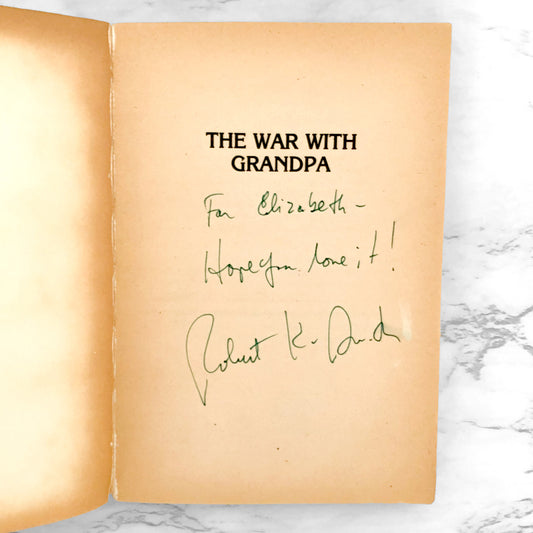 THE WAR WITH
GRANDPA
For Elizabeth –
Hope you love it!
Robert K.